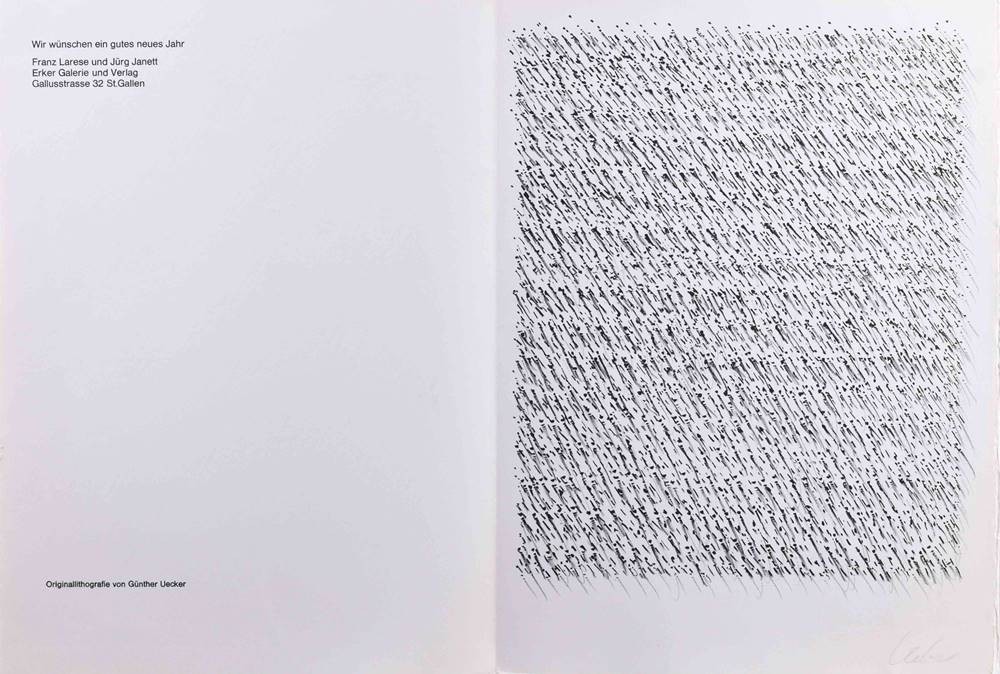 Wir wünschen ein gutes neues Jahr
Franz Larese und Jürg Janett
Erker Galerie und Verlag
Gallusstrasse 32 St.Gallen
Originallithografie von Günther Uecker